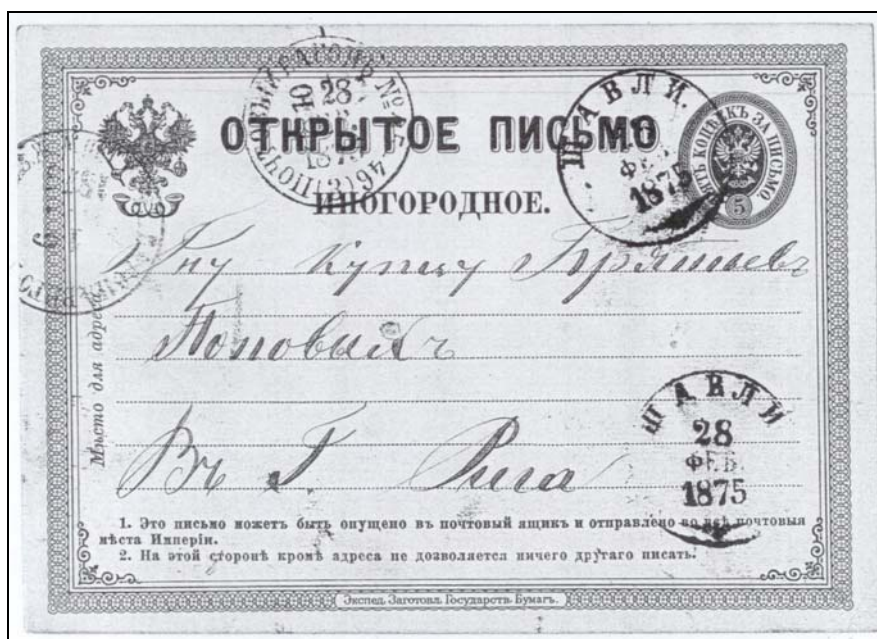 ОТКРЫТОЕ ПИСЬМО
ИНОГОРОДНОЕ.
ШАВЛИ.
ФЕВ
1875
28
10
ПЯТЬ КОПѢЕКЪ ЗА ПИСЬМО
5
6
Гну Купцу
Поповыхъ
Въ Г. Рига
Мѣсто для адреса
ШАВЛИ
28
ФЕВ.
1875
1. Это письмо можетъ быть опущено въ почтовый ящикъ и отправлено во всѣ почтовыя
мѣста Имперіи.
2. На этой сторонѣ кромѣ адреса не дозволяется ничего другаго писать.
Экспед. Заготовл. Государств. Бумагъ.